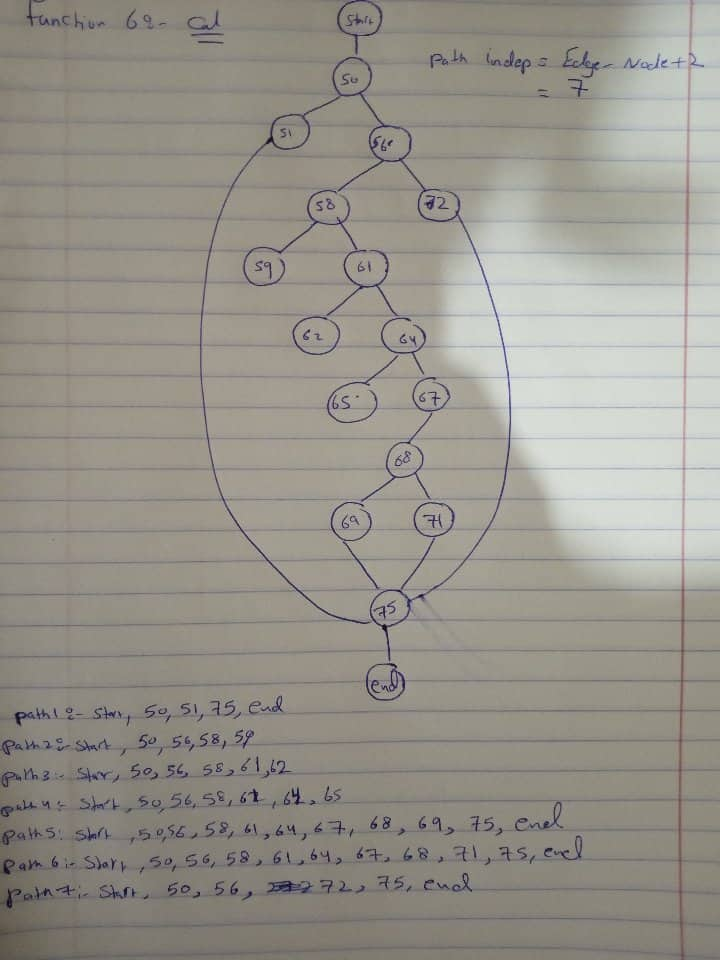 function 62- Cal
Start
path indep = Edge - Node + 2
= 7
50
51
56
58
72
59
61
62
64
65
67
68
69
71
75
end
path 1 :- Start, 50, 51, 75, end
path 2 :- Start, 50, 56, 58, 59
path 3 :- Star, 50, 56, 58, 61, 62
path 4 :- Start, 50, 56, 58, 61, 64, 65
path 5: Start, 50, 56, 58, 61, 64, 67, 68, 69, 75, end
Path 6 :- Start, 50, 56, 58, 61, 64, 67, 68, 71, 75, end
Path 7 :- Start, 50, 56, 72, 75, end